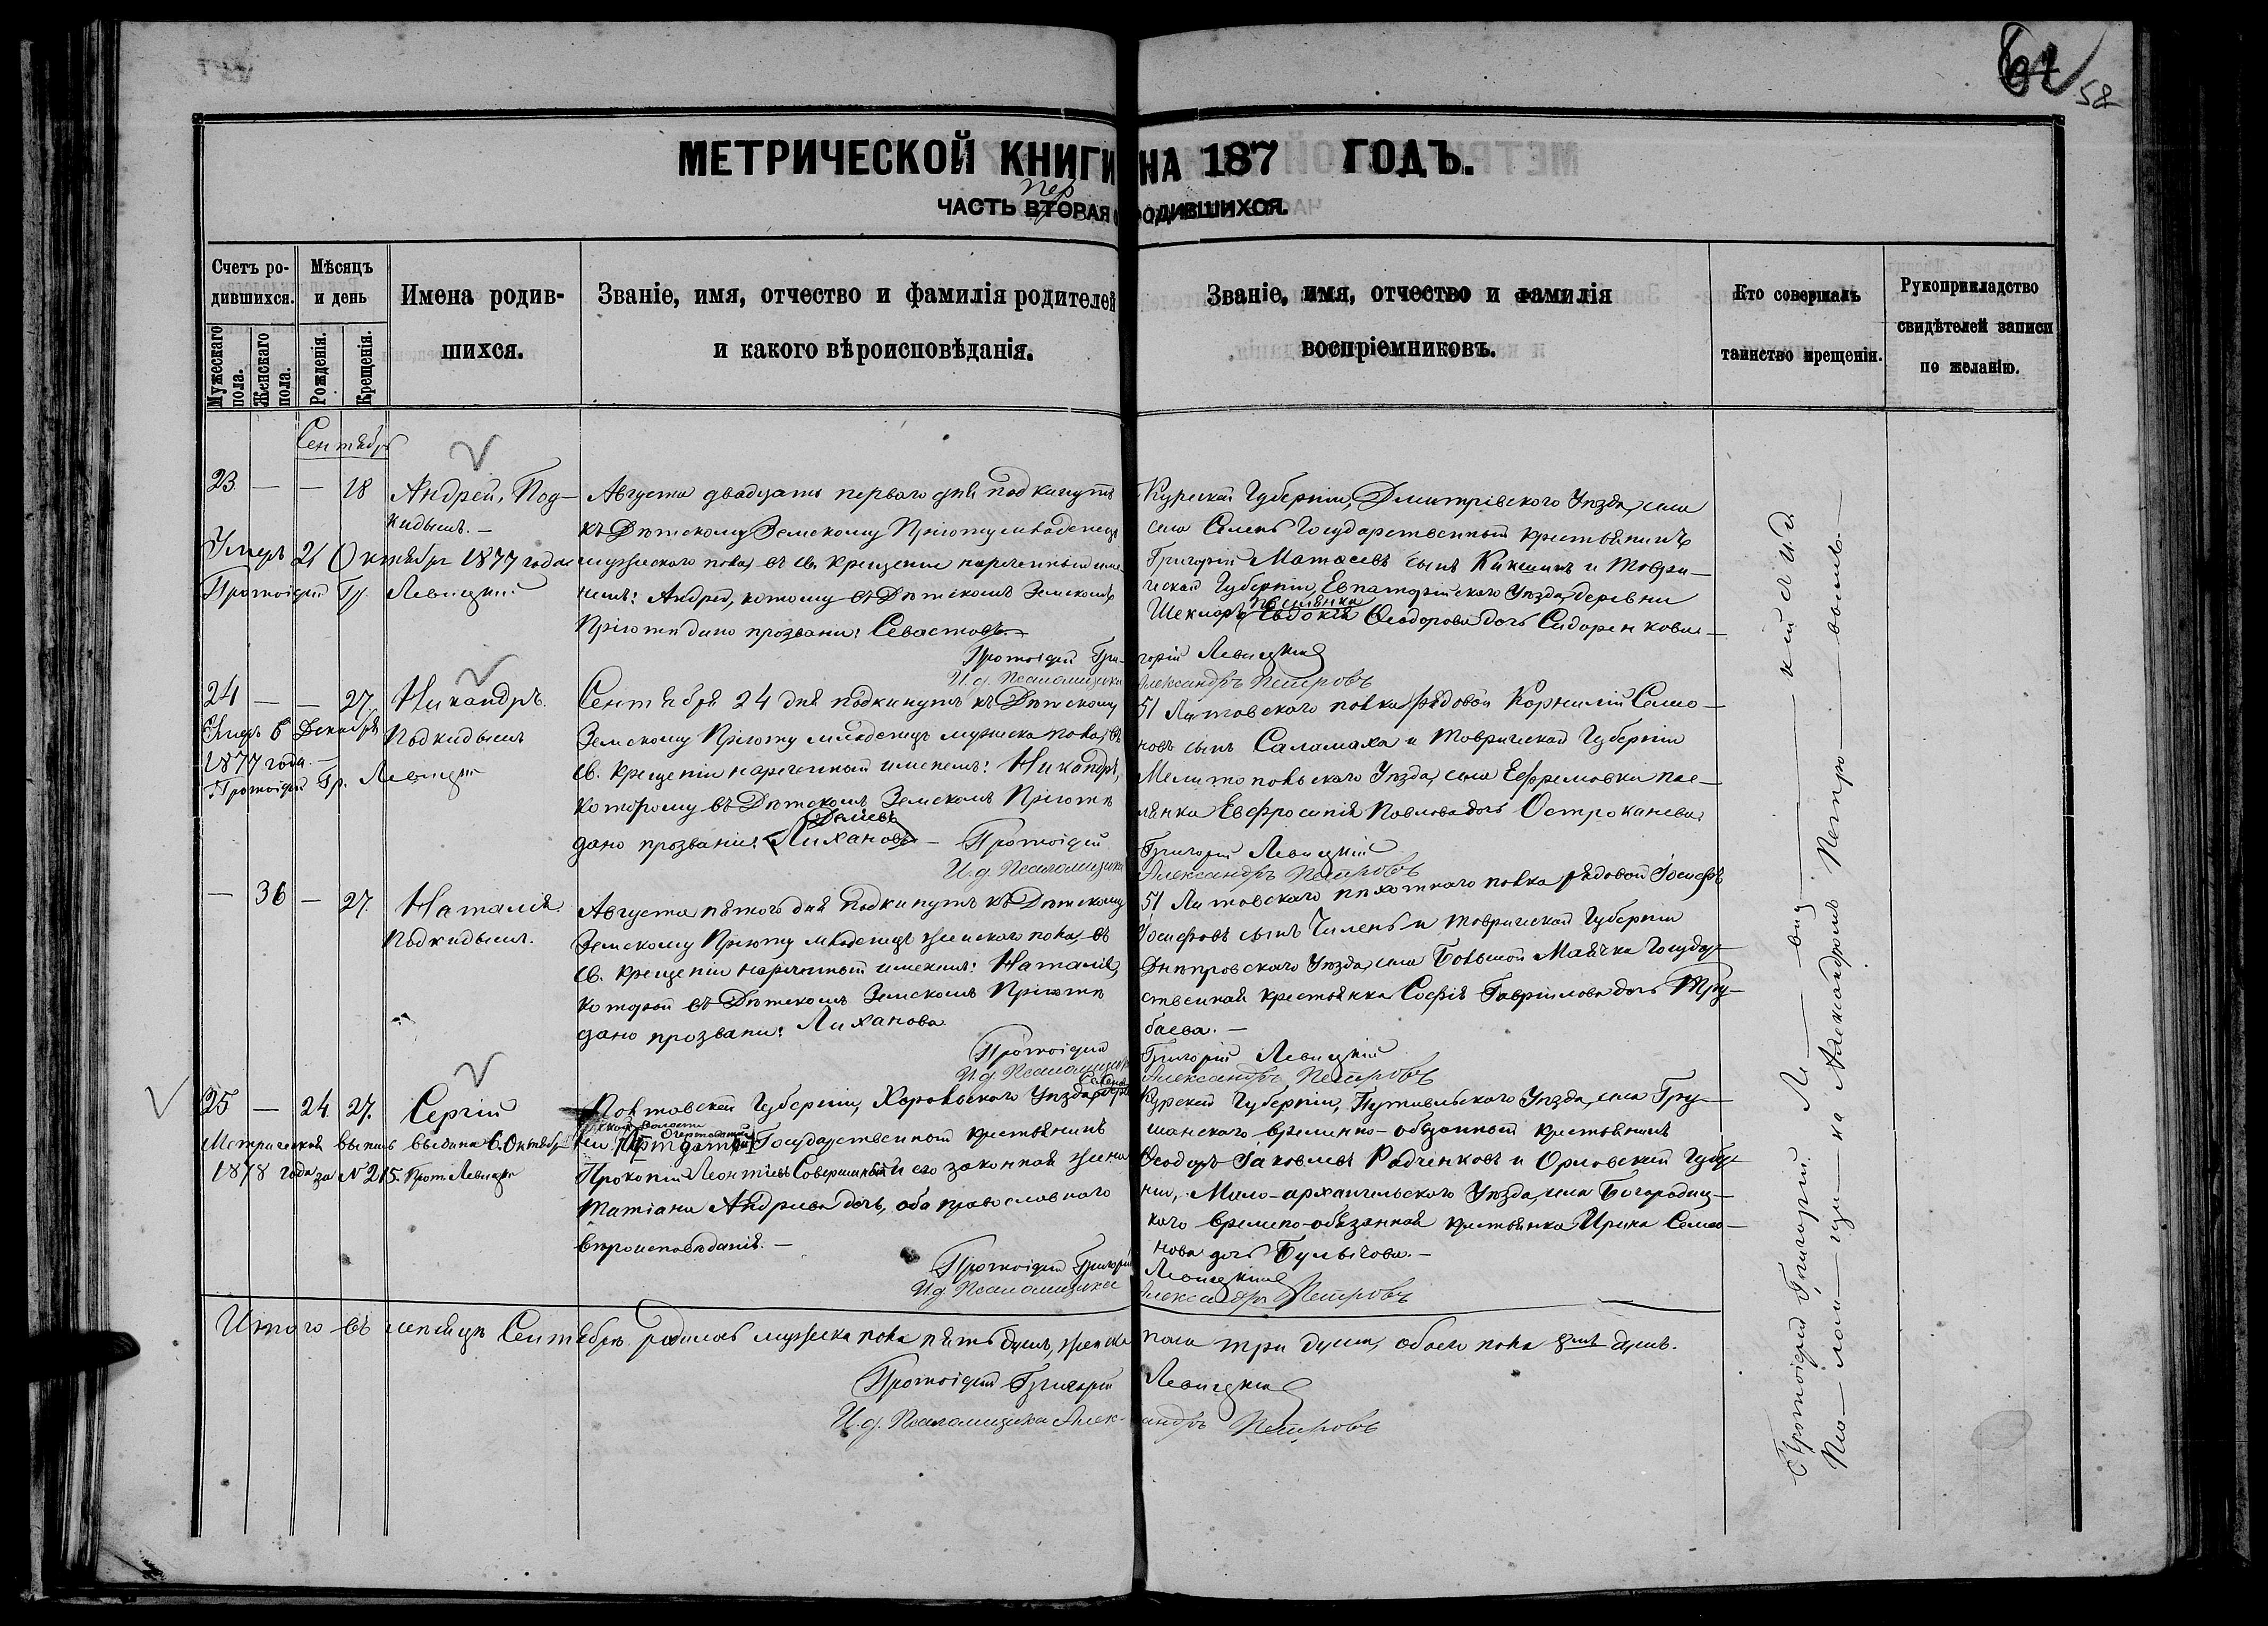 58
МЕТРИЧЕСКОЙ КНИГИ НА 187 ГОДЪ.
пер
ЧАСТЬ ВТОРАЯ О РОДИВШИХСЯ.
Счетъ родившихся.
Мужескаго пола.
Женскаго пола.
Мѣсяцъ и день
Рожденія.
Крещенія.
Имена родившихся.
Званіе, имя, отчество и фамилія родителей
и какого вѣроисповѣданія.
Званіе, имя, отчество и фамилія
воспріемниковъ.
Кто совершалъ
таинство крещенія.
Рукоприкладство
свидѣтелей записи
по желанію.
Сентябрь
23 — — 18 Андрей, Под-
кидышъ. —
Умеръ 21 Октября 1877 года
Протоіерей Гр. Левицкій
Августа двадцать перваго дня подкинутъ
къ Дѣтскому Земскому Пріюту младенецъ
мужескаго пола, въ св. крещеніи нареченный име-
немъ: Андрей, котому въ Дѣтскомъ Земскомъ
Пріютѣ дано прозваніе: Севастовъ. —
Курской Губерніи, Дмитріевского Уѣзда, села
села Селенъ Государственный крестьянинъ
Григорій Матѳеевъ сынъ Кикшинъ и Таври-
ческой Губерніи, Евпаторійскаго Уѣзда, деревни
поселянка
Евдокія Ѳеодорова дочь Сидоренкова —
Протоіерей Григорій Левицкій
И. д. Псаломщика Александръ Петровъ
24 — — 27. Никандръ.
Подкидышъ
Умеръ 6 Декабря
1877 года. —
Протоіерей Гр. Левицкій
Сентября 24 дня подкинутъ къ Дѣтскому
Земскому Пріюту младенецъ мужеска пола, въ
св. крещеніи нареченный именемъ: Никандръ,
которому въ Дѣтскомъ Земскомъ Пріютѣ
дано прозваніе: Лихановъ —
51 Литовскаго полка рядовой Корнилій Семо-
новъ сынъ Саламаха и Таврической Губерніи
Мелитопольскаго Уѣзда, села Ефремовки посе-
лянка Евфросинія Павлова дочь Остроканева.
Протоіерей Григорій Левицкій
И. д. Псаломщика Александръ Петровъ
— 36 — 27. Наталія.
Подкидышъ.
Августа пятого дня подкинутъ къ Дѣтскому
Земскому Пріюту младенецъ женскаго пола, въ
св. крещеніи нареченный именемъ: Наталія,
которой въ Дѣтскомъ Земскомъ Пріютѣ
дано прозваніе: Лиханова.
51 Литовскаго пѣхотнаго полка рядовой Іосифъ
Іосифовъ сынъ Чиленъ и Таврической Губерніи
Днѣпровскаго Уѣзда, села Большой Маячка Государ-
ственная крестьянка Софія Гавріилова дочь Тру-
баева. —
Протоіерей Григорій Левицкій
И. д. Псаломщика Александръ Петровъ
25 — 24 27. Сергій
Метрическая выпись выдана 6 Октября
1878 года за № 215. Прот. Левицкій
Полтавской Губерніи, Хорольскаго Уѣзда,
Государственный крестьянинъ
Прокопій Леонтіевъ и его законная жена
Татіана Андреева дочь, оба православнаго
вѣроисповѣданія. —
Курской Губерніи, Путивльскаго Уѣзда, села Гру-
шанскаго временно-обязанный крестьянинъ
Ѳеодоръ Іаковлевъ Радченковъ и Орловской Губер-
ніи, Мало-архангельскаго Уѣзда, села Богородиц-
каго временно-обязанная крестьянка Ирина Семо-
нова дочь Булычова. —
Протоіерей Григорій Левицкій
И. д. Псаломщика Александръ Петровъ
Итого въ мѣсяцѣ Сентябрѣ родилось мужеска пола пять душъ, женска пола три души, обоего пола 8мь душъ.
Протоіерей Григорій Левицкій
И. д. Псаломщика Александръ Петровъ
Протоіерей Григорій Ле — виц — кій съ и. д.
Пса — лом — щи — ка Александромъ Петро — вымъ. —